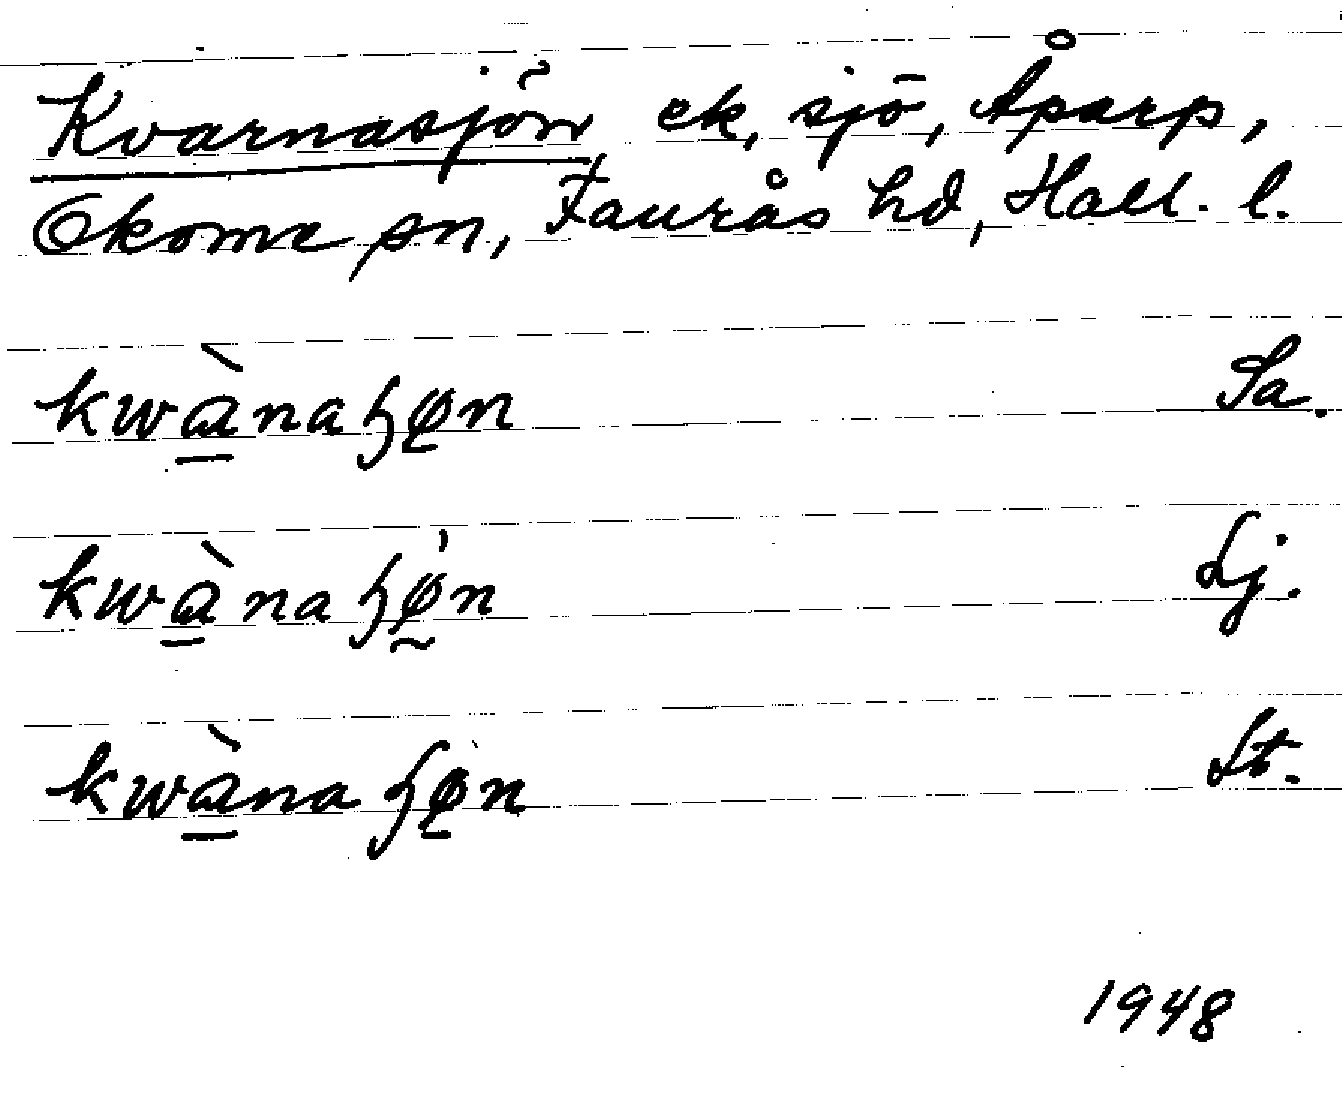 Kvarnasjön ek, sjö, Åparp,
Okome sn, Faurås hd, Hall. l.
kwànaɧøn Sa.
kwànaɧø̀n Lj.
kwànaɧøn St.
1948